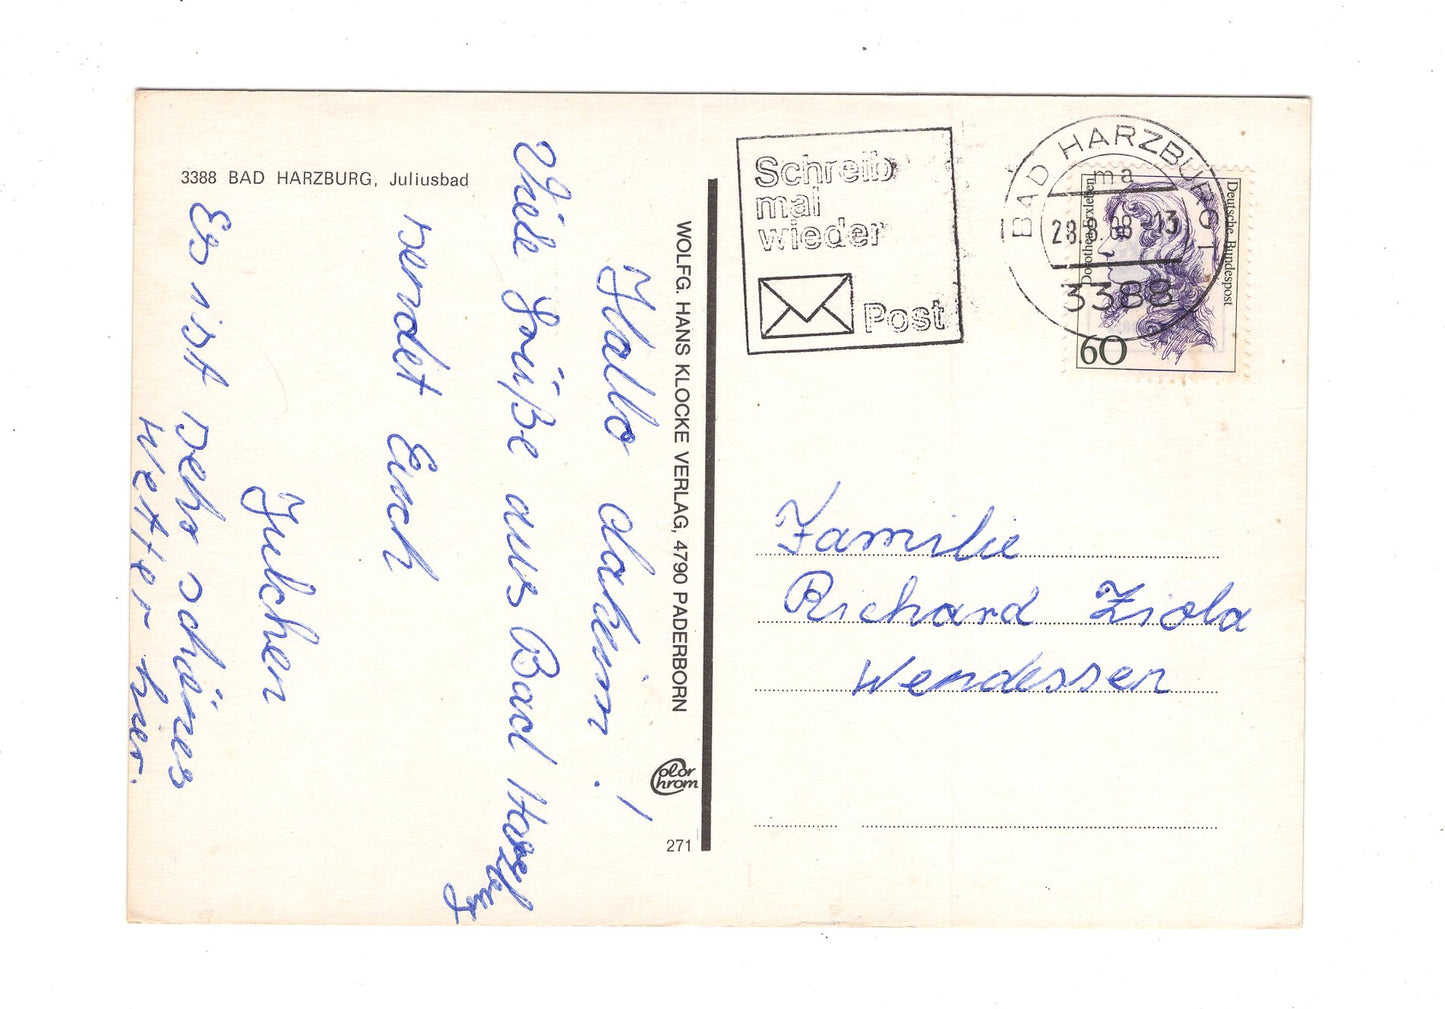 3388 BAD HARZBURG, Juliusbad
Hallo daheim!
Viele Grüße aus Bad Harzburg
sendet Euch
Julchen
Es ist sehr schönes
Wetter hier.
WOLFG. HANS KLOCKE VERLAG, 4790 PADERBORN
Color Chrom
271
Schreib
mal
wieder
Post
BAD HARZBURG 1
ma
28.8.88-13
3388
Deutsche Bundespost
60
Familie
Richard Ziola
Wendessen